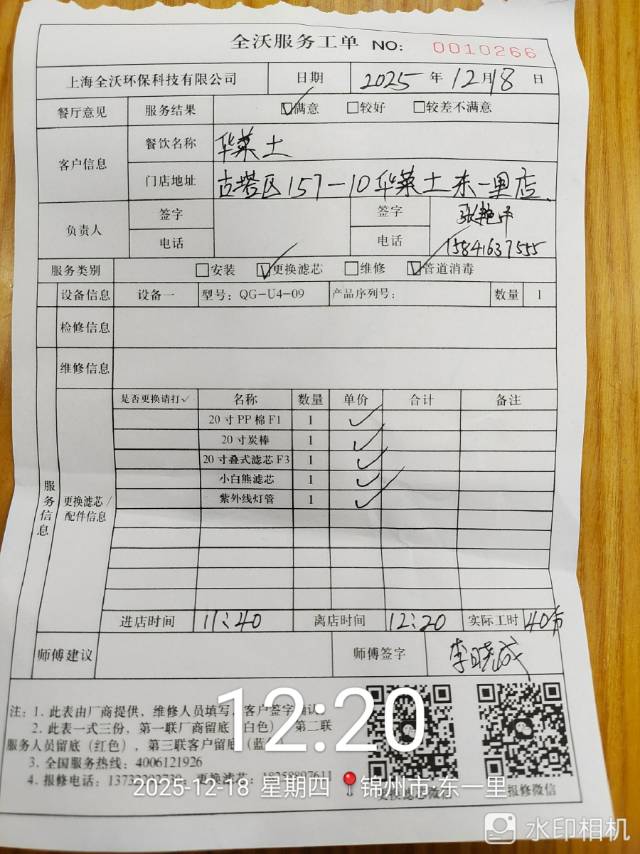 全沃服务工单 NO: 0010266
上海全沃环保科技有限公司 日期 2025 年 12 月 18 日
餐厅意见 服务结果 ☑满意 □较好 □较差不满意
客户信息 餐饮名称 华莱士
门店地址 古塔区157-10华莱士东一里店
负责人 签字 签字
电话 电话 15841637555
服务类别 □安装 ☑更换滤芯 □维修 ☑管道消毒
设备信息 设备一 型号: QG-U4-09 产品序列号: 数量 1
检修信息
维修信息
服务信息
更换滤芯/配件信息
是否更换请打✓ 名称 数量 单价 合计 备注
20寸PP棉F1 1 ✓
20寸炭棒 1 ✓
20寸叠式滤芯F3 1 ✓
小白熊滤芯 1 ✓
紫外线灯管 1 ✓
进店时间 11:40 离店时间 12:20 实际工时 40分
师傅建议 师傅签字 李晓成
注: 1. 此表由厂商提供, 维修人员填写, 客户签字
2. 此表一式三份, 第一联厂商留底(白色) 第二联
服务人员留底(红色), 第三联客户留底(蓝
3. 全国服务热线: 4006121926
4. 报修电话: 更换滤芯:
报修微信
12:20
2025-12-18 星期四 锦州市·东一里
水印相机